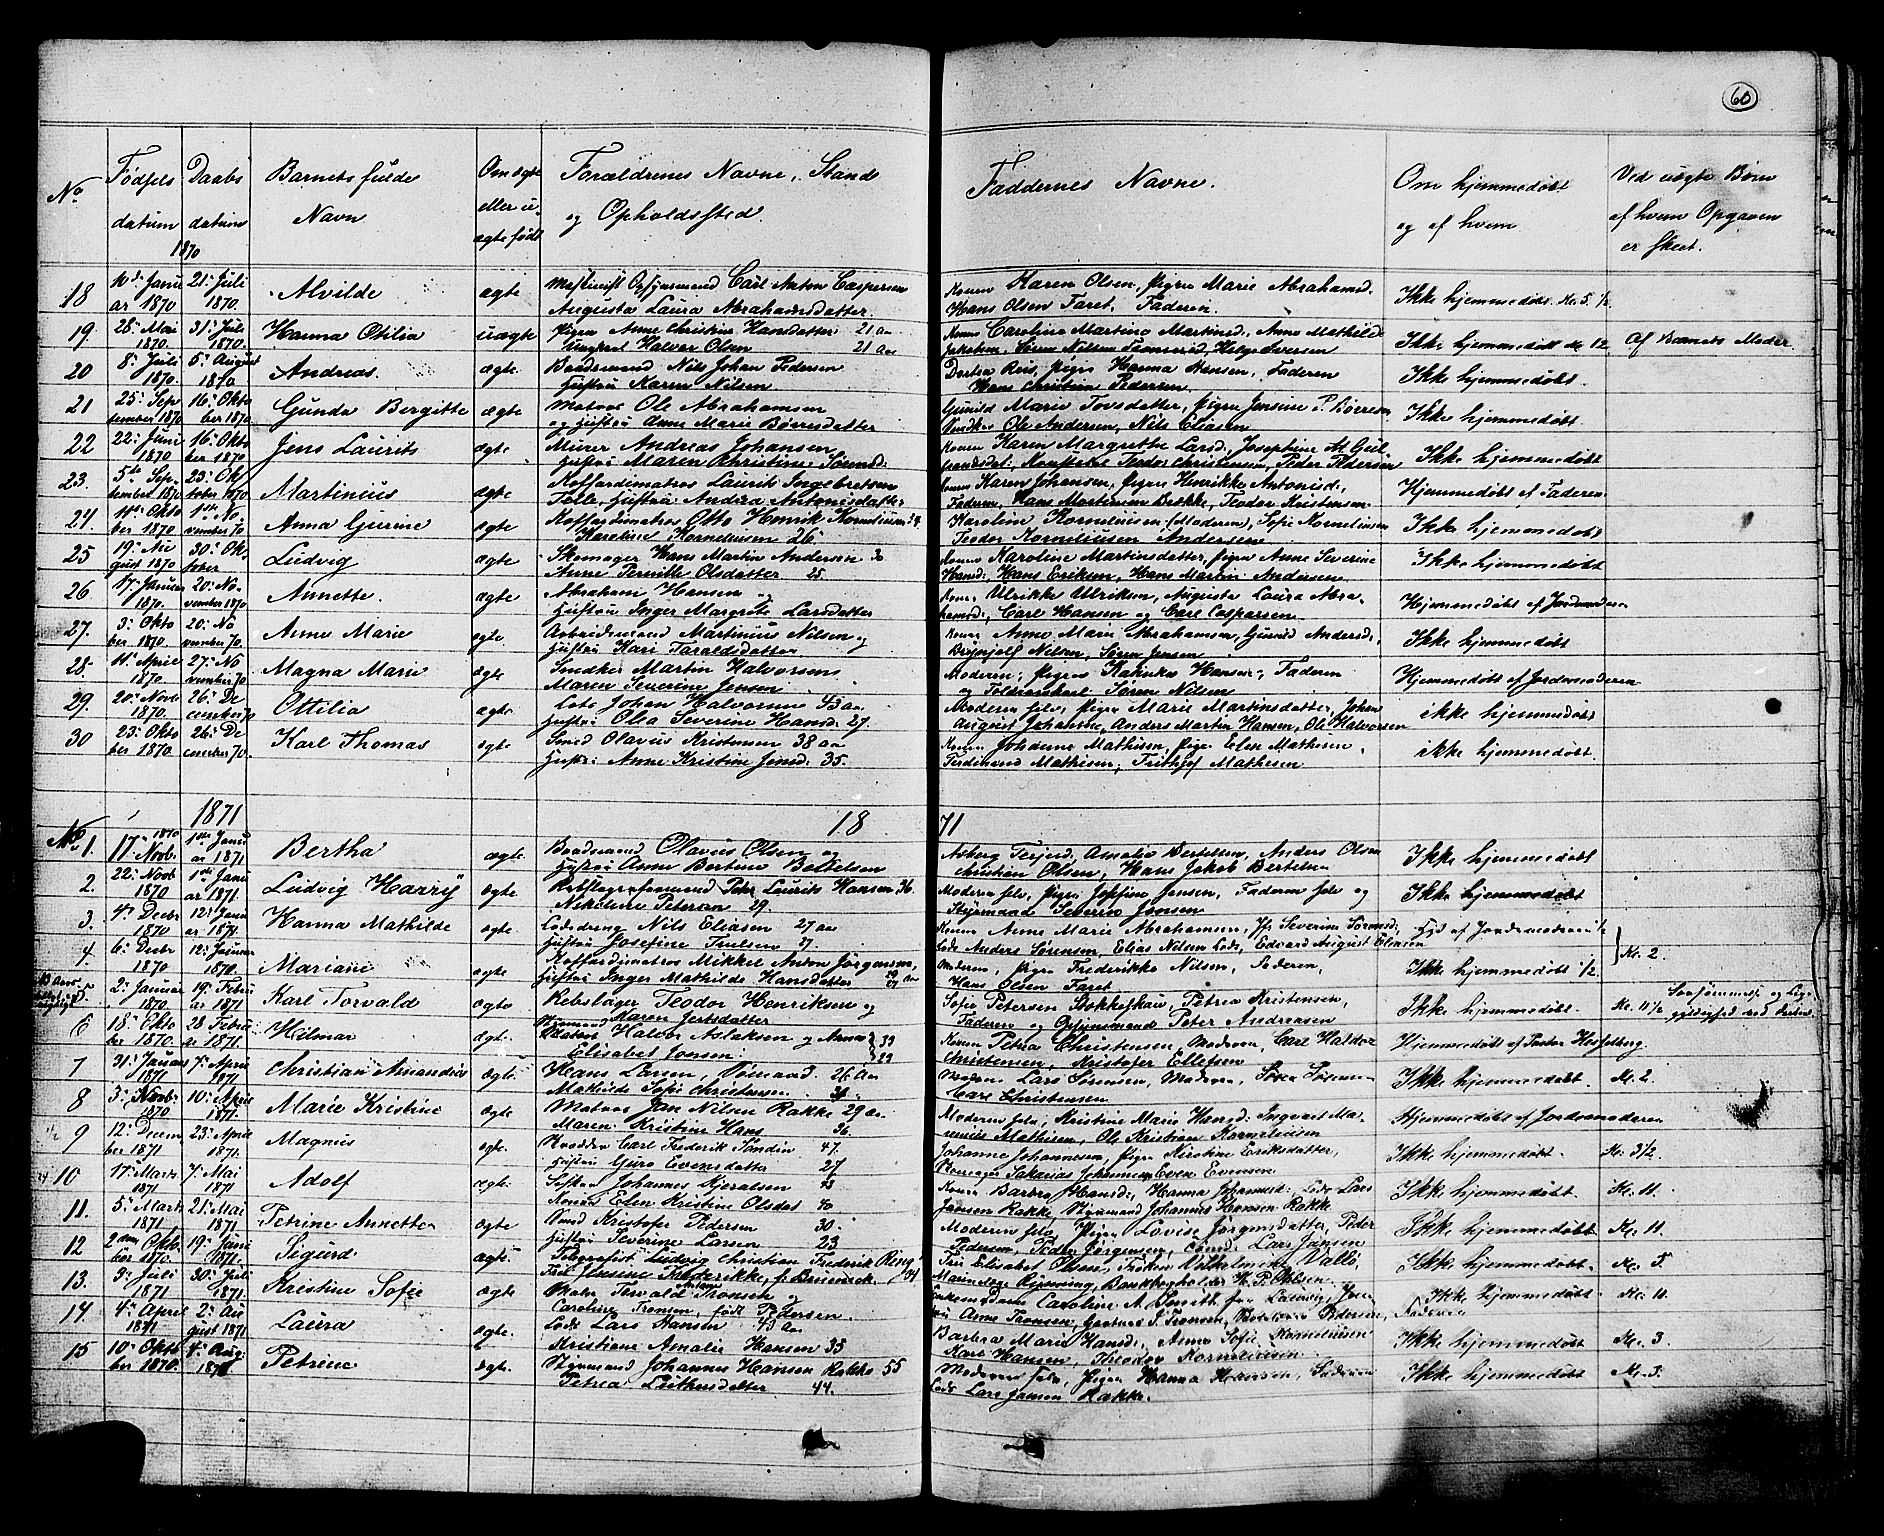 60
No
Fødsels datum
Daabs datum 1870
Barnets fulde Navn
Om ægte eller uægte født
Forældrenes Navne, Stand og Opholdssted.
Faddernes Navne.
Om hjemmedøbt og af hvem
Ved uægte Børn af hvem Opgaven er skeet.
18 10de Januar 1870 21: Juli 1870. Alvilde ægte Opsynsmand Carl Anton Caspersen
Augusta Laura Abrahamsdatter.
Konen Karen Olsen, Pigen Marie Abrahamsd.
Hans Olsen Faret, Faderen.
Ikke hjemmedøbt. Kl. 5. 1/2
19. 28: Mai 1870. 31: Juli 1870. Hanna Otilia uægte Pigen Anne Christine Hansdatter 21 Aar
Ungkarl Halvor Olsen 21 Aar
Konen Caroline Martine Martinsd., Anne Mathilde
Jakobsen, Søren Nilsen, Helge Iversen
Ikke hjemmedøbt Kl 12. Af Barnets Moder.
20 8: Juli 1870. 5: August 1870 Andreas. ægte. Baadsmand Nils Johan Pedersen
Hustru Karen Nilsen
Dortea Reis, Pigen Hanna Hansen, Faderen
Hans Christian Pedersen.
Ikke hjemmedøbt.
21 25: September 1870 16: Oktober 1870. Gunda Bergitte ægte Matros Ole Abrahamsen
og Hustru Anne Marie Børresdatter
Gunild Marie Tovsdatter, Pigen Jensine P. Børresen
Snedker Ole Andersen, Nils Eliasen
Ikke hjemmedøbt
22 22: Juni 1870 16: Oktober 1870. Jens Laurits ægte Murer Andreas Johansen
Hustru Maren Christine
Konen Karen Margrethe Larsd, Josephine
Teodor Christensen, Peder Pedersen
Ikke hjemmedøbt
23. 5te September 1870 23: Oktober 1870 Martinius ægte Koffardimatros Laurits Ingebretsen
Hustru Andrea Antonisdatter
Konen Karen Johansen, Pigen Henrikke Antonisd.
Faderen, Hans Martinsen Brekke, Teodor Kristensen
Hjemmedøbt af Faderen
24. 1ste Oktober 1870 1ste November 70 Anna Gurine ægte Koffardimatros Otto Henrik Korneliusen 34.
Karoline Korneliusen 26
Karoline Korneliusen (Moderen), Sofie Korneliusen
Teodor Korneliusen Andersen
Ikke hjemmedøbt
25 19: August 1870 30: Oktober Ludvig ægte Skomager Hans Martin Andersen
Anne Pernille Olsdatter 25.
Konen Karoline Martinsdatter, Pigen Anne Severine
Hansd., Hans Eriksen, Hans Martin Andersen
Ikke hjemmedøbt
26 17: Januar 1870. 20: November 1870 Annette. ægte Abraham Hansen og
Hustru Inger Margrete Larsdatter
Konen Ulrikke Ulriksen, Augusta Laura Abrahamsd., Carl Hansen og Carl Caspersen
Hjemmedøbt af Jordmoderen
27. 3: Oktober 1870 20: November 70. Anne Marie ægte Arbeidsmand Martinius Nilsen og
Hustru Kari Taraldsdatter
Konen Anne Marie Abrahamsen, Gunild Andersd.,
Brynjolf Nilsen, Søren Jensen
Ikke hjemmedøbt
28. 11: April 1870 27: November 70. Magna Marie ægte Snedker Martin Halvorsen
Maren Severine Jensen
Moderen, Pigen Hansen, Faderen
og Toldrorskarl Søren Nilsen
Hjemmedøbt af Jordemoderen
29. 20: Novb 1870. 26: December 70 Ottilia ægte. Lods Johan Halvorsen 43 Aar
Hustru Olea Severine Hansd. 27.
Moderen selv, Pigen Marie Martinsdatter, Johan
August Johansen, Anders Martin Hansen, Ole Halvorsen
ikke hjemmedøbt
30 23: Oktober 1870. 26: December 70. Karl Thomas ægte Smed Olavus Kristensen 38 Aar
Hustru: Anne Kristine Jensd. 35.
Konen Johanne Mathisen, Pige Elen Mathisen,
Ferdinand Mathisen, Frithjof Mathisen
ikke hjemmedøbt.
1871
1871
No 1. 1870 17: Novb. 1ste Januar 1871 Bertha ægte Baadsmand Olavus Olsen og
Hustru Anne Bertine Bertelsen
Asberg Terjesd., Amalie Bertelsen, Anders Olsen
Christian Olsen, Hans Jakob Bertelsen
Ikke hjemmedøbt
2. 22: Novb 1870 1ste Januar 1871. Ludvig Harry ægte Rebslagerformand Peter Laurits Hansen 36.
Nikoline Petersen 29.
Moderen selv, Pigen Josefine Jensen, Faderen selv og
Styrmand Severin Jensen
Ikke hjemmedøbt
3. 4: Decbr 1870 12: Januar 1871. Hanna Mathilde ægte Lodsdreng Nils Eliasen 27 Aar
Hustru Josefine Truelsen 27.
Konen Anne Marie Abrahamsen, Jfr. Severine Sørensd.,
Lods Anders Sørensen, Elias Nilsen Lods, Edvard August Eliasen
Hjd af Jordemoderen 1/2
Kl. 2
4 6: Decbr 1870 12: Januar 1870. Mariane ægte Koffardimatros Mikkel Anton Jørgensen, 29
Hustru Inger Mathilde Hansdatter 27 Aar
Moderen, Pigen Frederikke Nilsen, Faderen,
Hans Olsen Faret
Ikke hjemmedøbt 1/2
5. 2: Januar 1870. 19: Februar 1871 Karl Torvald ægte Rebslager Teodor Henriksen og
Maren Jertsdatter
Sofie Petersen Stokkeskau, Petrea Kristensen,
Faderen og Opsynsmand Peter Andreasen
Ikke hjemmedøbt. Kl. 11 1/2
6 18: Oktober 1870. 28 Februar 1871. Hilmar ægte. Halvor Aslaksen og Anna 33
Elisabet Jonsen. 29
Konen Petra Christensen, Moderen, Carl Haldor
Christensen, Kristofer Ellefsen
Hjemmedøbt af Pastor Hesselberg.
7 31: Januar 1871 7: April 1871 Christian Amandus ægte. Hans Larsen, Sømand 26 Aar
Mathilde Sofie Christensen
Lars Sørensen, Moderen, Søren Sørensen
Carl Christensen
Ikke hjemmedøbt. Kl. 2.
8 3: Novb: 1870 10: April 1871. Marie Kristine ægte Matros Jan Nilsen Rakke 29 Aar
Maren Kristine Hans 36.
Moderen selv, Kristine Marie Hansd. Ingvart Magnus Mathisen, Ole Kristian Korneliusen
Hjemmedøbt af Jordemoderen
1/2 9 12: December 1871 23: April 1871. Magnus ægte. Carl Frederik 47.
Hustru Guro Evensdatter 27
Johanne Johannesen, Pigen Nicoline Eriksdatter,
Sakarias Johannesen, Even Evensen
Ikke hjemmedøbt. Kl. 3 1/2.
10 17: Marts 1871 7: Mai 1871 Adolf ægte. Johannes Hjeralsen 43
Elen Kristine Olsdat 40
Konen Barbra Hansd., Hanna Johannesd. Lods Lars
Jansen Rakke, Styrmand Johannes Hansen Rakke
Ikke hjemmedøbt. Kl. 11.
11. 5: Marts 1871 21: Mai 1871 Petrine Annette ægte Smed Kristofer Pedersen 30.
Hustru Severine Larsen 23
Moderen selv, Pigen Lovise Jørgensdatter, Peder
Pedersen, Peder Jørgensen, Lars Jansen
Ikke hjemmedøbt Kl. 11.
12 2den Oktober 1870. 19: Juni 1871. Sigurd ægte. Telegrafist Ludvig Christian Frederik Ring
Frederikke, f. 34
Fru Elisabet Olsen, Frøken Vilhelmine Vallø,
Bankbogholder H. P. Ohlsen.
Ikke hjemmedøbt. Kl. 5.
13. 5: Juli 1871 30: Juli 1871. Kristine Sofie ægte Maler Torvald Anton Tronsen og
Caroline Tronsen, født Petersen.
Caroline A. Smith fra Laurvig,
Anne Tronsen, T. Tronsen, Pedersen, Faderen
Ikke hjemmedøbt. Kl. 11.
14. 4: April 1871 2: August 1871 Laura ægte. Lods Lars Hansen 43 Aar
Kristiane Amalie Hansen 35
Barbra Marie Hansd., Anne Sofie Korneliusen
Karl Hansen, Theodor Korneliusen.
Ikke hjemmedøbt Kl. 3
15 10: Oktober 1870. 4: Aug. 1871 Petrine ægte. Styrmand Johannes Hansen Rakke 55
Petrea 44.
Moderen selv, Pigen Hanna Hansen, Faderen
Lods Lars Jansen Rakke.
Ikke hjemmedøbt Kl. 3.